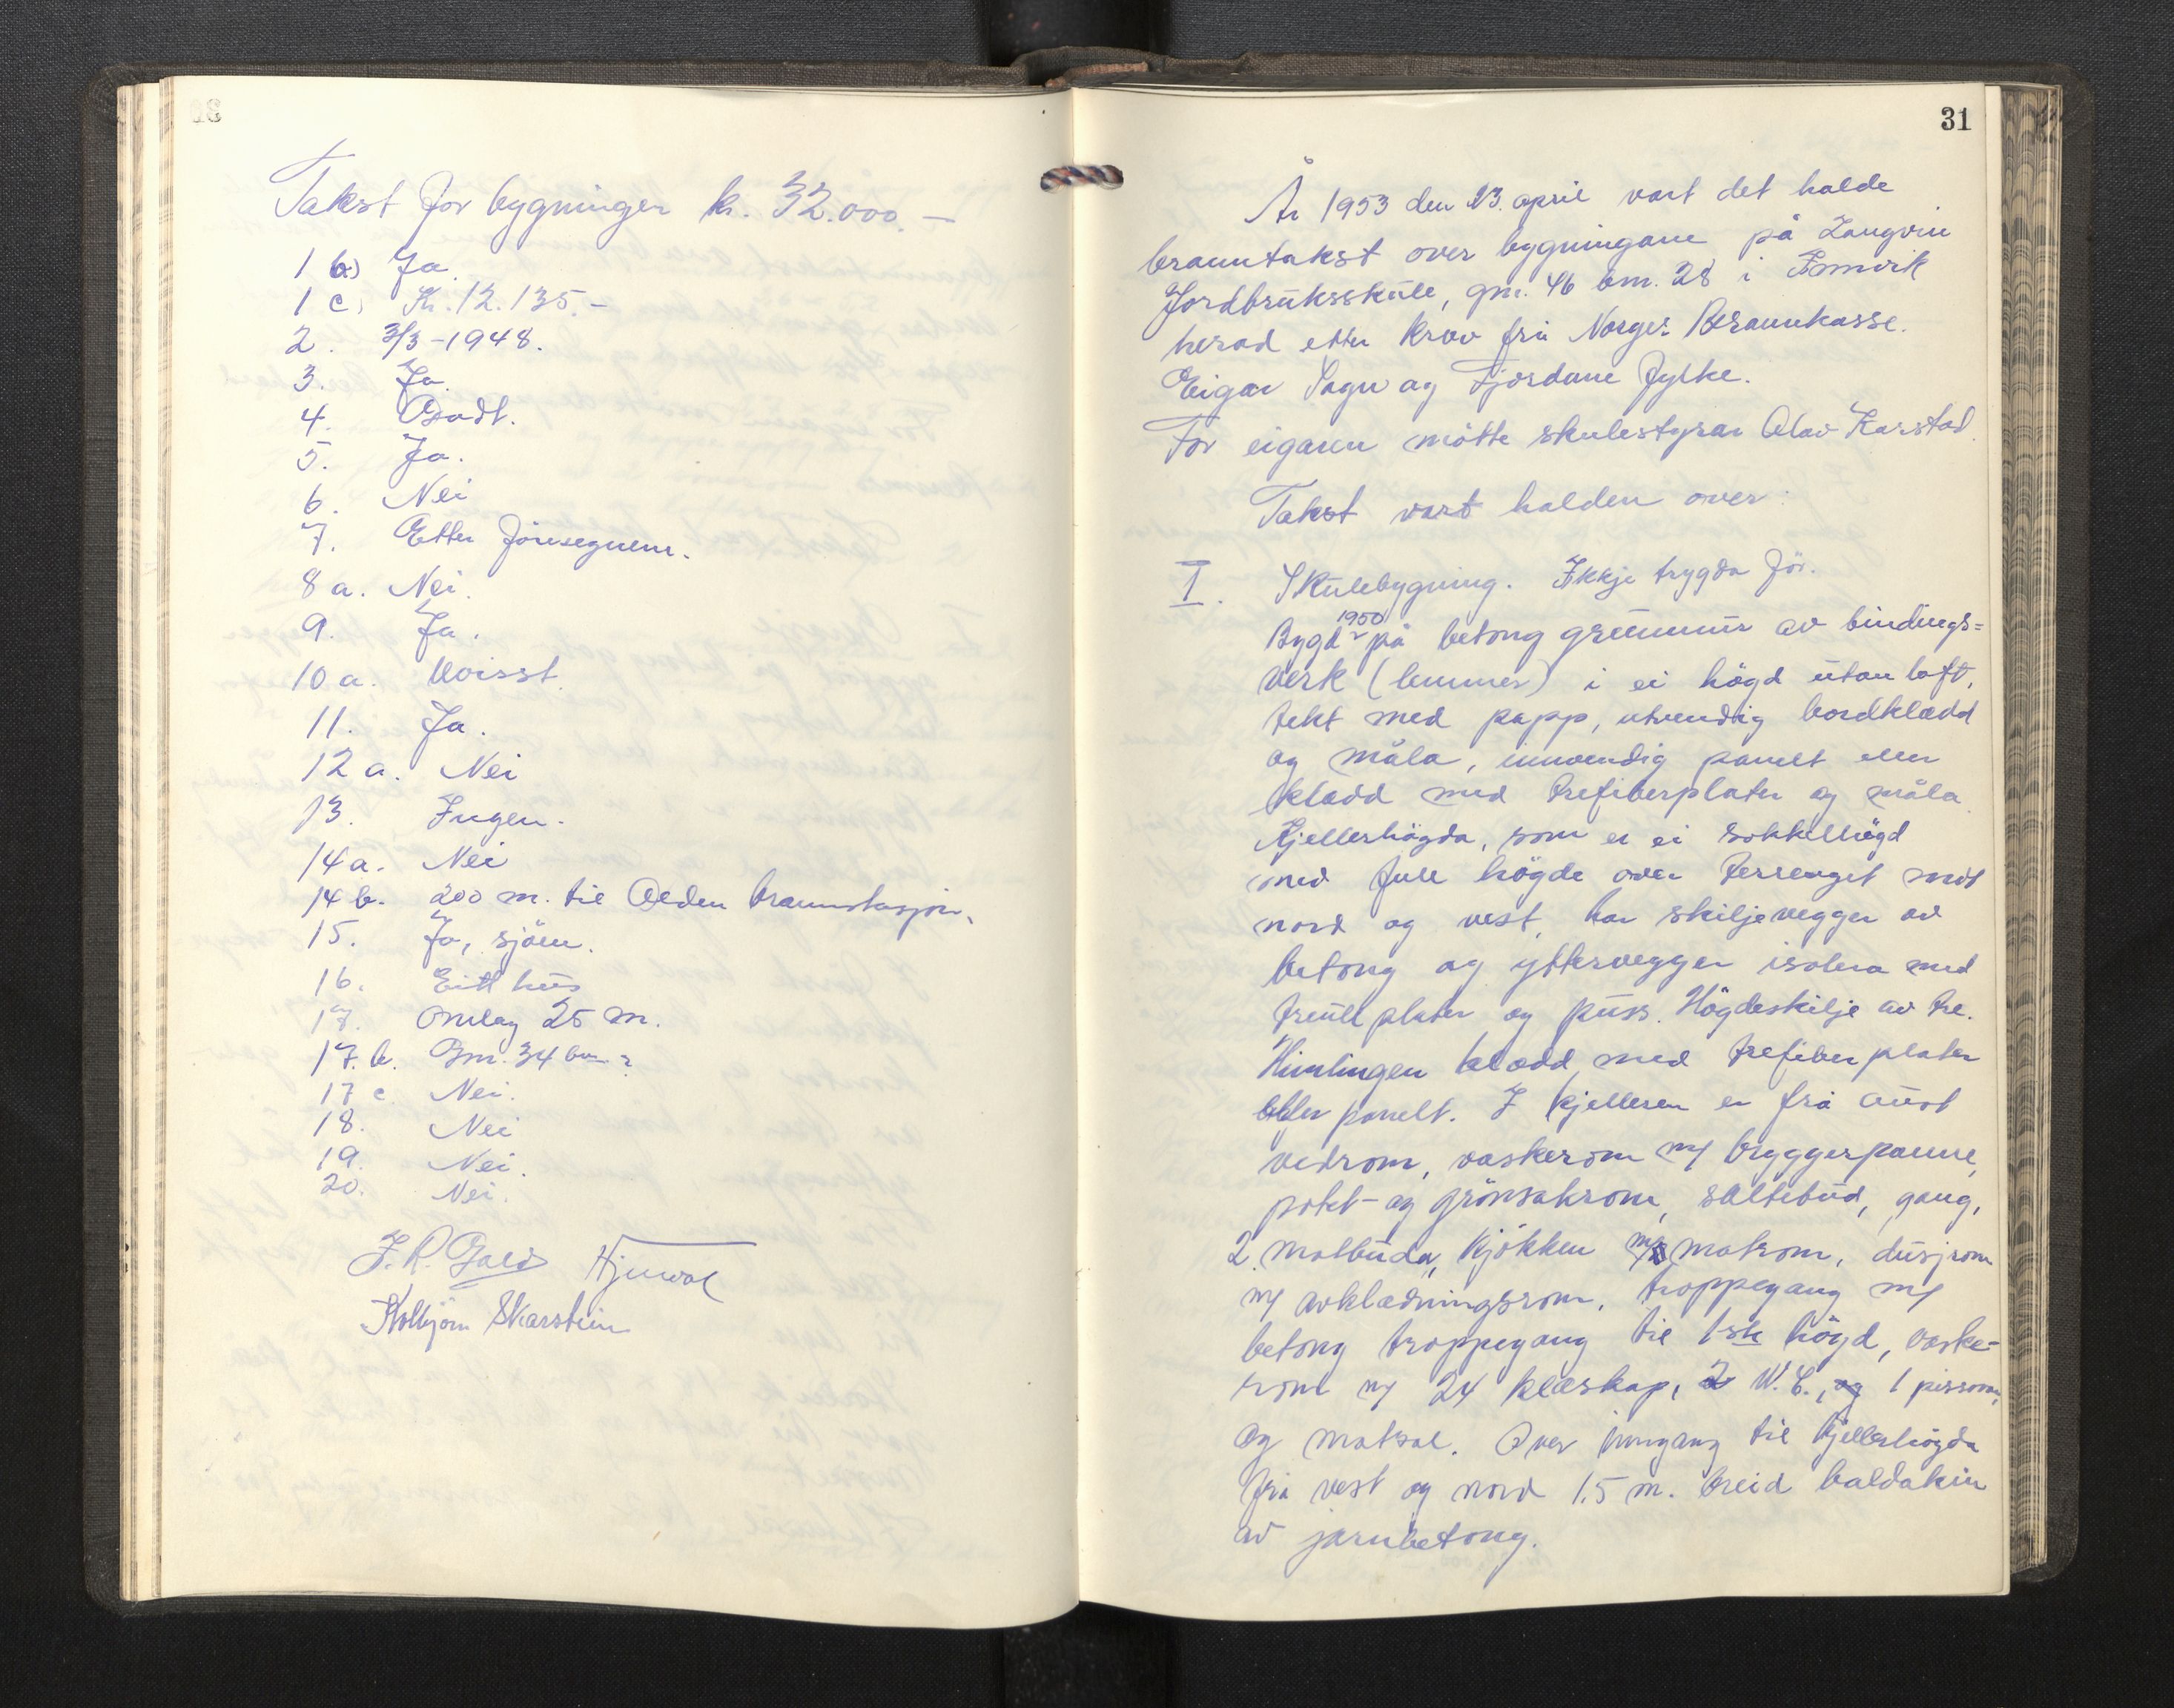 Takst for bygningen kr. 32.000.-
1 b) Ja.
1 c) Kr. 12.135.-
2. 3/3-1948.
3. Ja.
4. Godt.
5. Ja.
6. Nei
7. Etter føresegnene.
8 a. Nei.
9. Ja.
10 a. Uvisst.
11. Ja.
12 a. Nei
13. Ingen.
14 a. Nei
14 b. 200 m. til Olden brannstasjon.
15. Ja, sjøen.
16. Eitt hus
17. Omlag 25 m.
17. b. Gnr. 34 bnr ?
17 c. Nei.
18. Nei
19. Nei.
20. Nei.
J. R. Gald
Kolbjørn Skarstein
31
År 1953 den 23. april vart det halde
branntakst over bygningane på Langvin
Jordbruksskule, gnr. 46 bnr. 28 i Innvik
herad etter krav frå Norges Brannkasse.
Eigar Sogn og Fjordane fylke.
For eigaren møtte skulestyrar Olav Karstad.
Takst vart halden over:
I. Skulebygning. Ikkje trygda før.
Bygd 1950 på betong grunnmur av bindings=
verk (lemmer) i ei høgd utan loft,
tekt med papp, utvendig bordklædd
og måla, innvendig panelt eller
klædd med trefiberplater og måla.
Kjellerhøgda, som er ei sokkelhøgd
med full høgde over terrenget mot
nord og vest, har skiljevegger av
betong og yttervegger isolera med
treull plater og puss. Høgdeskilje av tre.
Himlingen klædd med trefiber plater
eller panelt. I kjelleren er frå aust
vedrom, vaskerom m/ bryggerpanne,
potet- og grønsakrom, saltebud, gang,
2 matbuder, kjøkken m/ matrom, dusjrom
m/ avklædningsrom, troppegang m/
betong troppegang til 1ste høgd, vaske-
rom m/ 24 klæskap, 2 W.C., og 1 pissoar,
og matsal. Over inngang til kjellerhøgda
frå vest og nord 1.5 m. breid baldakin
av jarnbetong.